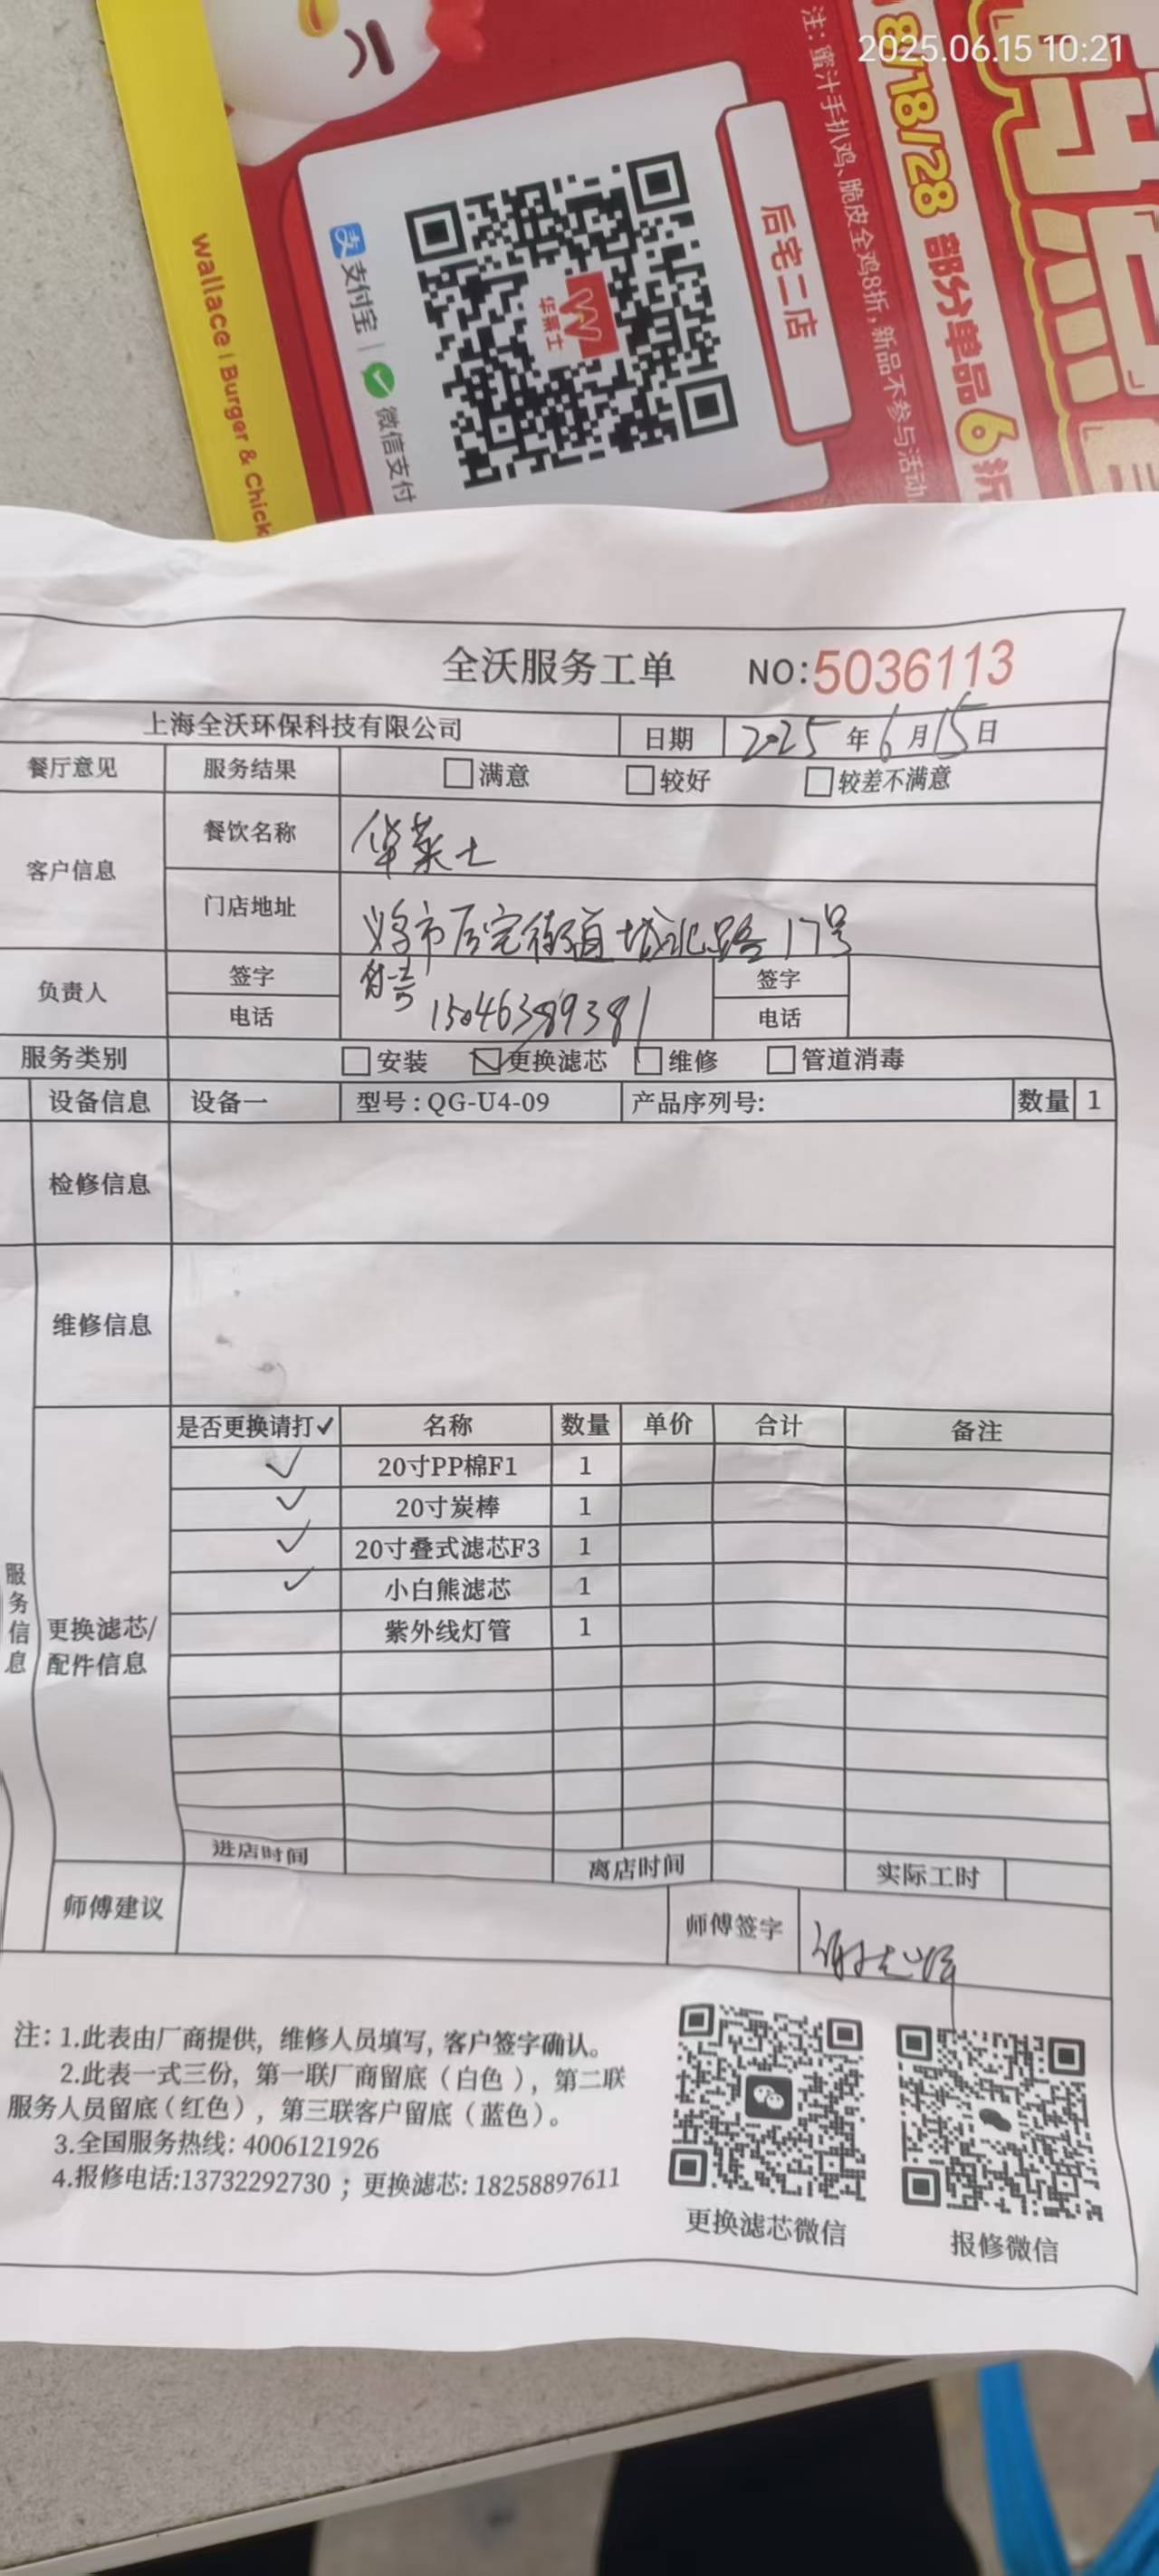 2025.06.15 10:21
注：蜜汁手扒鸡、脆皮全鸡8折，新品不参与活动
8/18/28 部分单品6折
后宅二店
华莱士
支付宝 | 微信支付
wallace | Burger & Chick
全沃服务工单 NO:5036113
上海全沃环保科技有限公司 日期 2025年6月15日
餐厅意见 服务结果 满意 较好 较差不满意
客户信息 餐饮名称 华莱士
门店地址 义乌市后宅街道城北路17号
负责人 签字 签字
电话 15046389381 电话
服务类别 安装 更换滤芯 维修 管道消毒
设备信息 设备一 型号:QG-U4-09 产品序列号: 数量 1
检修信息
维修信息
服务信息
更换滤芯/配件信息
是否更换请打✓ 名称 数量 单价 合计 备注
✓ 20寸PP棉F1 1
✓ 20寸炭棒 1
✓ 20寸叠式滤芯F3 1
✓ 小白熊滤芯 1
紫外线灯管 1
进店时间 离店时间 实际工时
师傅建议 师傅签字
注：1.此表由厂商提供，维修人员填写，客户签字确认。
2.此表一式三份，第一联厂商留底（白色），第二联
服务人员留底（红色），第三联客户留底（蓝色）。
3.全国服务热线：4006121926
4.报修电话:13732292730；更换滤芯:18258897611
更换滤芯微信 报修微信